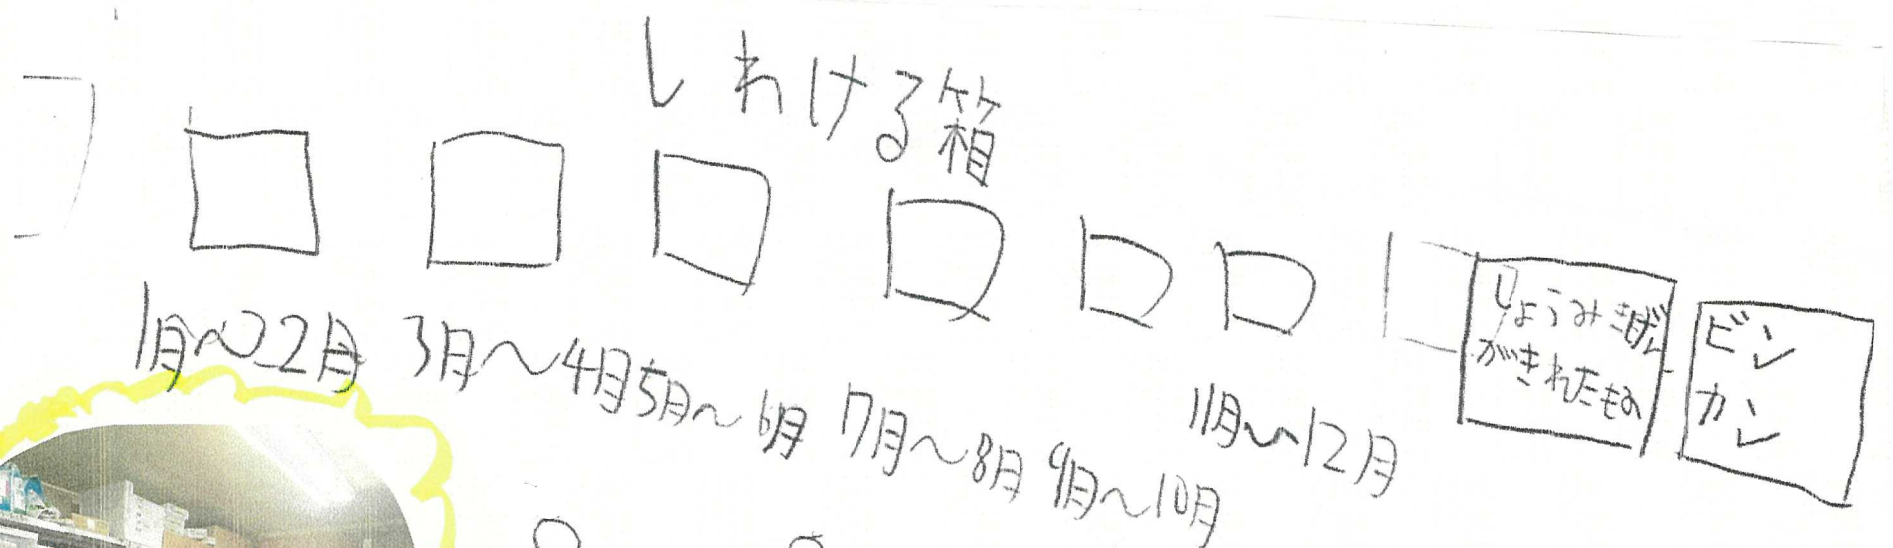 しわける箱
1月〜2月
3月〜4月
5月〜6月
7月〜8月
9月〜10月
11月〜12月
しょうみきげん
がきれたもの
ビン
カン